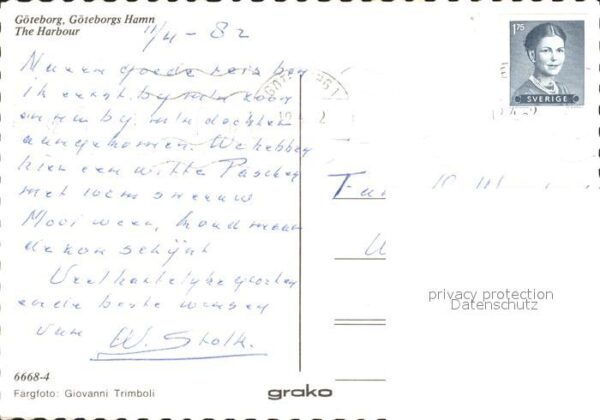 Göteborg, Göteborgs Hamn
The Harbour
11/4 - 82
Na een goede reis ben
ik eerst by m'n zoon
en nu by m'n dochter
aangekomen. We hebben
hier een witte Paschen
met 10cm sneeuw
Mooi weer, hoor
de zon schijnt
Veel hartelijke groeten
en de beste wensen
van W. Stolk.
1.75
SVERIGE
Fam
privacy protection
Datenschutz
6668-4
Färgfoto: Giovanni Trimboli
grako